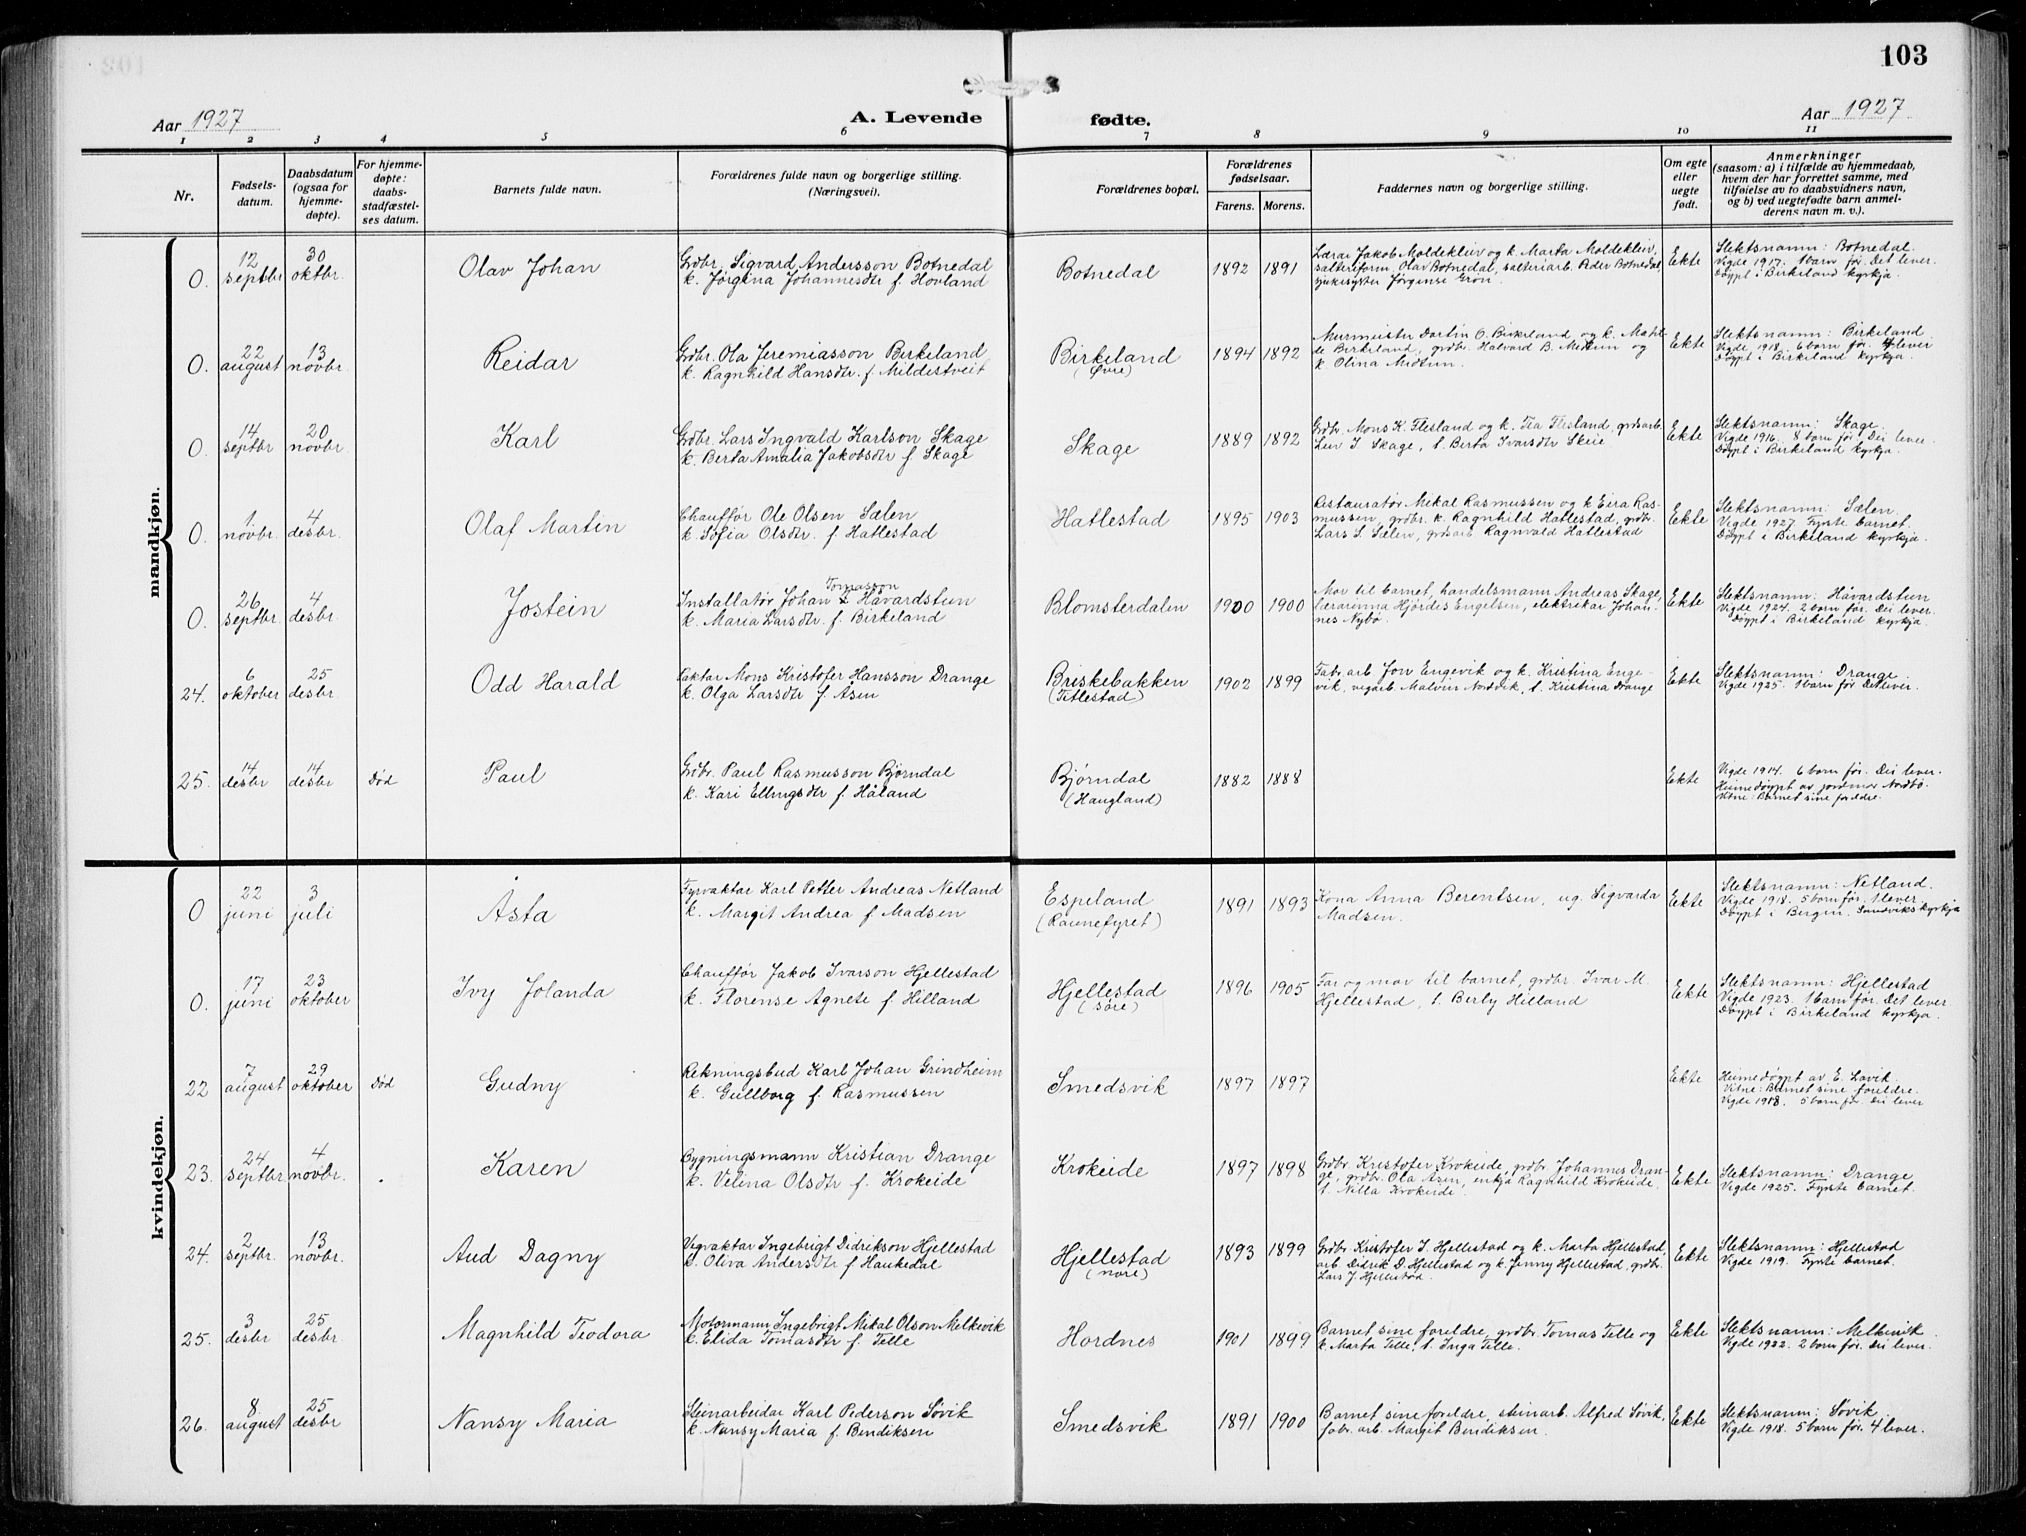 103
Aar 1927
A. Levende fødte.
Aar 1927
1 2 3 4 5 6 7 8 9 10 11
Nr.
Fødsels-
datum.
Daabsdatum
(ogsaa for
hjemme-
døpte).
For hjemme-
døpte:
daabs-
stadfæstel-
ses datum.
Barnets fulde navn.
Forældrenes fulde navn og borgerlige stilling.
(Næringsvei).
Forældrenes bopæl.
Forældrenes
fødselsaar.
Farens. Morens.
Faddernes navn og borgerlige stilling.
Om egte
eller
uegte
født.
Anmerkninger
(saasom: a) i tilfælde av hjemmedaab,
hvem der har forrettet samme, med
tilføielse av to daabsvidners navn,
og b) ved uegtefødte barn anmel-
derens navn m. v.).
mandkjøn.
0. 12 septbr 30 oktbr. Olav Johan
Grdbr. Sigvard Andersson Botnedal
k. Jørgina Johannesdtr f. Hovland
Botnedal 1892 1891
Lærar Jakob Moldekleiv og k. Marta Moldekleiv,
Olav Botnedal, Peder Botnedal,
sjukesyster Jørgense Gron.
Ekte
Slektsnamn: Botnedal.
Vigde 1917. 1 barn før. Det lever.
Døypt i Birkeland kyrkja.
0. 22 august 13 novbr. Reidar
Grdbr. Ola Jeremiasson Birkeland
k. Ragnhild Hansdtr. f. Mildestveit
Birkeland
(Øvre)
1894 1892
Murmeister Dortin O. Birkeland og k. Matil-
de Birkeland, grdbr. Halvard B. Midtun og
k. Olina Midtun.
Ekte
Slektsnamn: Birkeland
Vigde 1918. 6 born før. 4 lever
Døypt i Birkeland kyrkja.
0. 14 septbr 20 novbr. Karl
Grdbr. Lars Ingvald Karlson Skage
k. Berta Amalia Jakobsdtr f. Skage
Skage 1889 1892
Grdbr. Mons K. Flesland og k. Tea Flesland, grdsarb.
Leiv I. Skage, t. Berta Ivarsdtr Skeie
Ekte
Slektsnamn: Skage.
Vigde 1916. 8 born før. Dei lever.
Døypt i Birkeland kyrkja.
0. 1 novbr. 4 desbr. Olaf Martin
Chauffør Ole Olsen Sælen
k. Sofia Olsdtr. f. Hatlestad
Hatlestad 1895 1903
Restauratør Mikal Rasmussen og k Eira Ras-
mussen, grdbr. k. Ragnhild Hatlestad, grdbr.
Lars S. Sælen, grdsarb Ragnvald Hatlestad
Ekte
Slektsnamn: Sælen.
Vigde 1927. Fyrste barnet.
Døypt i Birkeland kyrkja.
0. 26 septbr. 4 desbr. Jostein
Tomasson
Installatør Johan Håvardstun
k. Maria Larsdtr. f. Birkeland
Blomsterdalen 1900 1900
Mor til barnet, handelsmann Andreas Skage,
lærarinna Hjørdes Engelsen, elektrikar Johan-
nes Nybø.
Ekte
Slektsnamn: Håvardstun
Vigde 1924. 2 born før. Dei lever.
Døypt i Birkeland kyrkja.
24. 6 oktober 25 desbr. Odd Harald
Faktar Mons Kristofer Hansson Drange
k. Olga Larsdtr f. Åsen
Briskebakken
(Titlestad)
1902 1899
Fabr. arb Jon Engevik og k. Kristina Enge-
vik, vegarb. Malvin Nordvik, t. Kristina Drange
Ekte
Slektsnamn: Drange.
Vigde 1925. 1 barn før Det lever.
25. 14 desbr 14 desbr Død Paul
Grdbr. Paul Rasmusson Bjørndal
k. Kari Ellingsdtr f. Håland
Bjørndal
(Haugland)
1882 1888
Ekte
Vigde 1914. 6 born før. Dei lever.
Heimedøypt av jordmor Nordbø.
Vitne: Barnet sine foreldre.
kvindekjøn.
0 22 juni 3 juli Åsta
Fyrvaktar Karl Petter Andreas Netland
k. Margit Andrea f. Madsen
Espeland
(Raunefyret)
1891 1893
Kona Anna Berentsen, ug. Sigvarda
Madsen.
Ekte
Slektsnamn: Netland.
Vigde 1918. 5 born før. 1 lever.
Døypt i Bergen. Sandvikskyrkja
0. 17 juni 23 oktober Ivy Jolanda
Chauffør Jakob Ivarson Hjellestad
k. Florense Agnete f. Hilland
Hjellestad
(søre)
1896 1905
Far og mor til barnet, grdbr. Ivar M.
Hjellestad, t. Berly Hilland
Ekte
Slektsnamn: Hjellestad
Vigde 1923. 1 barn før. Det lever
Døypt i Birkeland kyrkja.
22 7 august 29 oktober Død Gudny
Rekningsbud Karl Johan Grindheim
k. Gullborg f. Rasmussen
Smedsvik 1897 1897
Ekte
Heimedøypt av E. Lavik.
Vitne: Barnet sine foreldre.
Vigde 1918. 5 born før. Dei lever
23. 24 septbr. 4 novbr. Karen
Bygningsmann Kristian Drange
k. Velina Olsdtr f. Krokeide
Krokeide 1897 1898
Grdbr. Kristofer Krokeide, grdbr. Johannes Dran-
ge, grdbr. Ola Åsen, enkja Ragnhild Krokeide.
t. Nilla Krokeide.
Ekte
Slektsnamn: Drange
Vigde 1925. Fyrste barnet.
24. 2 septbr. 13 novbr. Aud Dagny
Vegvaktar Ingebrigt Didrikson Hjellestad
k. Oliva Andersdtr f. Haukedal
Hjellestad
(nore)
1893 1899
Grdbr Kristofer I. Hjellestad og k. Marta Hjellestad,
arb. Didrik D. Hjellestad og k. Jenny Hjellestad, grdbr.
Lars J. Hjellestad.
Ekte
Slektsnamn: Hjellestad
Vigde 1919. Fyrste barnet.
25. 3 desbr 25 desbr. Magnhild Teodora
Motormann Ingebrigt Mikal Olson Melkevik
k. Elida Tomasdtr f. Telle
Hordnes 1901 1899
Barnet sine foreldre, grdbr. Tomas Telle og
k. Marta Telle, t. Inga Telle.
Ekte
Slektsnamn: Melkevik.
Vigde 1922. 2 born før. Dei lever.
26. 8. august 25 desbr Nansy Maria
Steinarbeidar Karl Pederson Søvik
k. Nansy Maria f. Bendiksen
Smedsvik 1891 1900
Barnet sine foreldre, steinarb. Alfred Søvik,
fabr. arb. Margit Bendiksen.
Ekte
Slektsnamn: Søvik.
Vigde 1918. 5 born før. 4 lever.